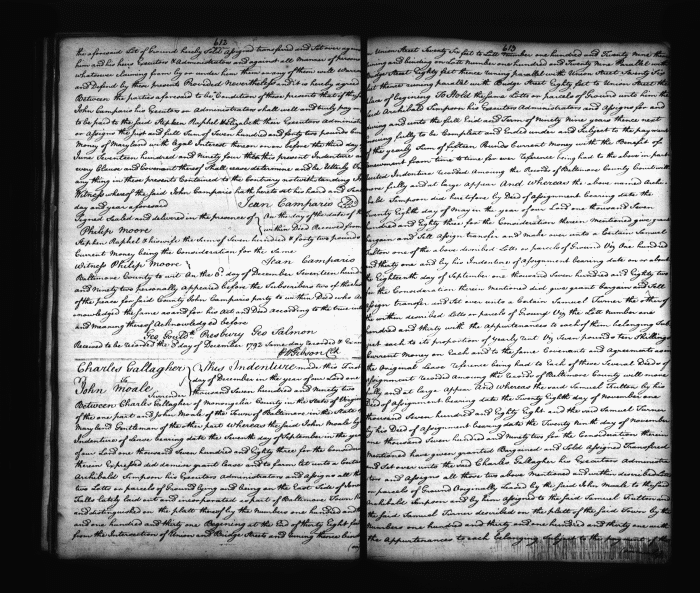 612
the aforesaid Lot of Ground hereby Sold Assigned transferred and Set over against
him and his heirs Executors & Administrators and against all manner of persons
whatsoever claiming from by or under him them or any of them will Warrant
and Defend by these presents Provided Nevertheless and it is hereby agreed
Between the parties aforesaid to be Condition of these presents that if the said
John Camparis his Executors or Administrators shall well and truly pay or cause
to be paid to the said Stephen Raphel & Elizabeth their Executors Administrators
or Assigns the just and full Sum of Seven hundred and forty two pounds Current
Money of Maryland with legal Interest thereon on or before the third day of
June Seventeen hundred and Ninety four then this present Indenture and
every Clause and Covenant thereof Shall cease determine and be Utterly Void
any thing in these presents Contained to the Contrary notwithstanding In
Witness whereof the said John Camparis hath hereto set his hand and Seal
day and year aforesaid Jean Camparis
Signed Sealed and delivered in the presence of On the day of the date of the
Philip Moore within Deed Received from
Stephen Raphel & wife the Sum of Seven hundred & forty two pounds
Current Money being the consideration for the Same
Witness Philip Moore Jean Camparis
Baltimore County to wit On the 3d day of December Seventeen hundred
and Ninety two personally appeared before the Subscribers two of the Justices
of the peace for said County John Camparis party to within Deed who Ac
knowledged the same as and for his Act and Deed according to the true intent
and Meaning thereof Acknowledged before
Geo Gouldh Presbury Geo Salmon
Received to be Recorded the 3d day of December 1792 Same day recorded & Exd
Wm Gibson Clk
Charles Gallagher This Indenture made this First
to day of December in the year of our Lord one
John Moale thousand Seven hundred and Ninety two
Surrender
Between Charles Gallagher of Monongalia County in the State of Virginia
of the one part and John Moale of the Town of Baltimore in the State of
Maryland Gentleman of the other part Whereas the said John Moale by
Indenture of Lease bearing date the Seventh day of September in the year
of our Lord one thousand Seven hundred and Eighty three for the Consideration
therein Expressed did demise grant lease and to farm let unto a Certain
Archibald Simpson his Executors Administrators and Assigns all those
two Lotts or parcels of Ground lying and being on the East Side of Jones
Falls lately laid out and incorporated a part of Baltimore Town &
and distinguished on the platt thereof by the Numbers one hundred and thirty
and one hundred and thirty one Begening at the End of thirty Eight feet
from the Intersection of Union and Bridge Streets and runing thence bounding
613
Union Street Seventy Six feet to Lott Number one hundred and Twenty Nine then
runing and binding on Lott Number one hundred and Twenty Nine Parallel with
Bridge Street Eighty feet thence runing parallel with Union Street Seventy Six
feet thence runing parallel with Bridge Street Eighty feet to Union Street
place of begening To Hold the same Lotts or parcels of Ground unto him the
said Archibald Simpson his Executors Administrators and Assigns for and
during and unto the full End and Term of Ninety Nine years thence next
ensuing fully to be Compleat and Ended under and Subject to the payment
of the yearly Sum of fifteen Pounds Current money with the Benefit of
Renewment from time to time for ever reference being had to the above in part
recited Indenture recorded Among the Records of Baltimore County Court will
more fully and at large Appear And Whereas the above named Archi-
bald Simpson did heretofore by Deed of Assignment bearing date the
Twenty Eighth day of May in the year of our Lord one thousand Seven
hundred and Eighty three for the Consideration therein Mentioned give grant
Bargain and Sell Assign transfer and make over unto a Certain Samuel
Fulton one of the above described Lotts or parcels of Ground Viz One hundred
and thirty one and by his Indenture of Assignment bearing date on or about
the Eighteenth day of September one thousand Seven hundred and Eighty two
for the Consideration therein Mentioned did give grant bargain and Sell
Assign transfer and Set over unto a Certain Samuel Turner the other of
the within described Lotts or parcels of Ground Viz the Lott Number one
hundred and thirty with the appurtenances to each of them belonging Sub-
ject each to its proportion of yearly rent Viz Seven pounds & ten Shillings
Current Money on Each and to the same Covenants and Agreements as in
the Original Lease reference being had to Each of these Several Deeds of
Assignment recorded Among the records of Baltimore County will more
fully and at large Appear And Whereas the said Samuel Fulton by his
Deed of Assignment bearing date the Twenty Eighth day of November one
thousand Seven hundred and Eighty Eight and the said Samuel Turner
by his Deed of Assignment bearing date the Twenty Ninth day of November
one thousand Seven hundred and Ninety two for the Considerations therein
Mentioned have given granted Bargained and Sold Assigned Transferred
and Set over unto the said Charles Gallagher his Executors Administra
tors and Assigns all those two above Mentioned and within described Lotts
or parcels of Ground Originally Leased by the said John Moale to the said
Archibald Simpson and by him Assigned to the said Samuel Fulton and
the said Samuel Turner described on the platt of the said Town by the
Numbers one hundred and thirty and one hundred and thirty one with
the appurtenances to each belonging subject to the payment of the